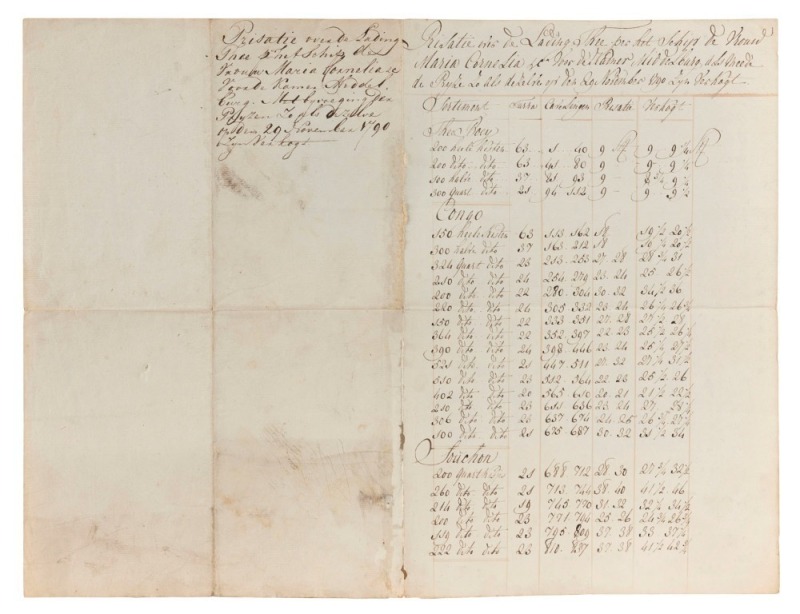 Prisatie over de Lading
Thee p het Schip de
Vrouw Maria Cornelia
Voor de Kamer Middel
Burg
Prijzen Zo als dezelve
op den 29 November 1790
Zijn Verkogt
Prisatie over de Lading Thee per het Schip de Vrouw
Maria Cornelia voor de Kamer Middelburg, als meede
de Prijze Zo als dezelve op den 29 November 1790 Zijn Verkogt
Sortiment Tarra Cavelingen Prisatie Verkogt
Thee Boey
200 heele kisten 63 1 40 9 9 9 ¼
200 dito dito 63 41 80 9 9 9 ¼
100 halve dito 37 81 95 9
300 quart dito 21 96 112 9 9 9 ½
Congo
150 heele kisten 63 113 162 18 19 ½ 20 ½
300 halve dito 37 163 212 18 20 ½
324 quart dito 23 213 253 27 28 28 ¾ 31
210 dito dito 24 254 279 23 24 25 26 ½
200 dito dito 22 280 304 30 32 34 ½ 36
220 dito dito 24 305 332 23 24
150 dito dito 22 333 351 27 28 27 ½ 28
364 dito dito 22 352 397 22 23 25 ½ 26 ½
390 dito dito 24 398 446 23 24 25 ½ 27 ½
521 dito dito 21 447 511 27 32 27 ½ 31 ½
510 dito dito 23 512 564 22 23 25 ½ 26
402 dito dito 20 565 610 20 21 21 ½ 22 ½
210 dito dito 23 611 636 23 24 27 28 ½
306 dito dito 23 637 674 24 25
100 dito dito 21 675 687 30 32 31 ½ 34
Souchon
200 quart kisten 21 688 712 28 30 27 ¾ 32 ½
260 dito dito 21 713 744 38 40 41 ½ 46
214 dito dito 19 745 770 31 32 32 ½ 34 ½
210 dito dito 23 771 794 25 26
119 dito dito 23 795 809 37 38 33 37 ½
222 dito dito 23 810 837 37 38 41 ½ 42 ½